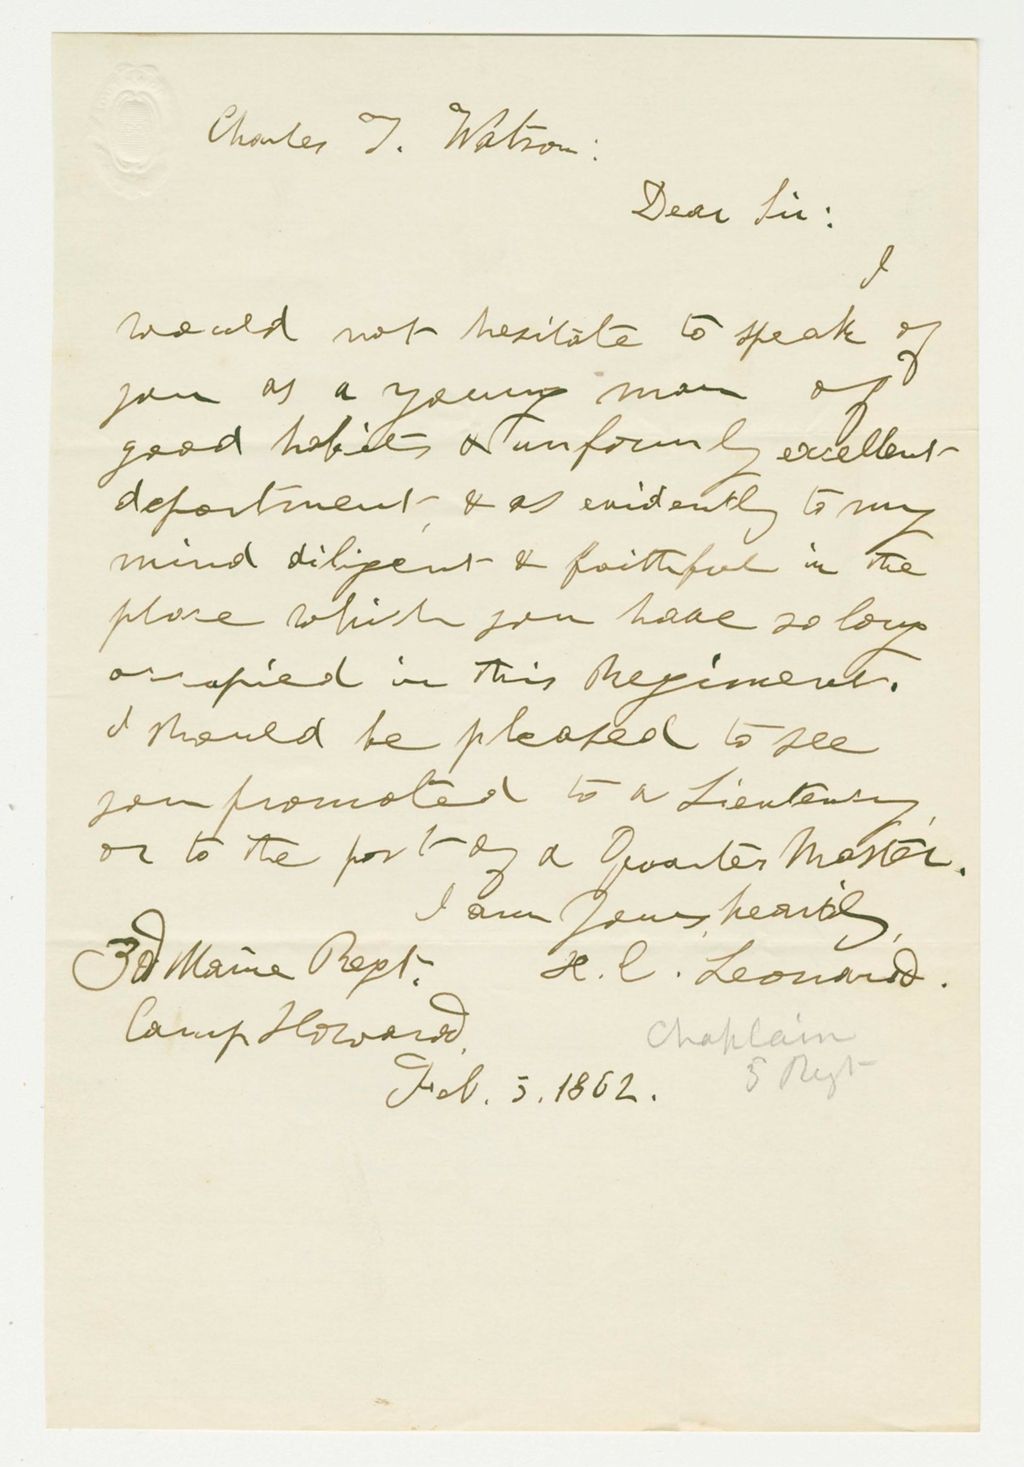 Charles T. Watson:
Dear Sir:
I
would not hesitate to speak of
you as a young man of
good habits & uniformly excellent
deportment, & as evidently to my
mind diligent & faithful in the
place which you have so long
occupied in this Regiment.
I should be pleased to see
you promoted to a Lieutency,
or to the post of a Quarter Master.
I am Yours, heartily,
3d Maine Regt. H. C. Leonard.
Camp Howard,
Chaplain
5 Regt
Feb. 5. 1862.